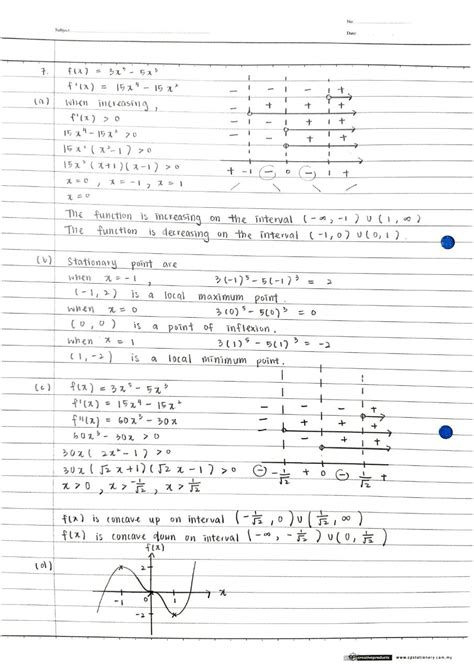 No.
Subject
Date
7. f(x) = 3x⁵ − 5x³
f'(x) = 15x⁴ − 15x²
(a) When increasing,
f'(x) > 0
15x⁴ − 15x² > 0
15x² (x² − 1) > 0
15x² (x+1)(x−1) > 0
x = 0, x = −1, x = 1
x = 0
− − − +
− + + +
+ −1 − 0 − 1 +
The function is increasing on the interval (−∞, −1) ∪ (1, ∞)
The function is decreasing on the interval (−1, 0) ∪ (0, 1).
(b) Stationary point are
when x = −1, 3(−1)⁵ − 5(−1)³ = 2
(−1, 2) is a local maximum point.
when x = 0 3(0)⁵ − 5(0)³ = 0
(0, 0) is a point of inflexion.
when x = 1 3(1)⁵ − 5(1)³ = −2
(1, −2) is a local minimum point.
(c) f(x) = 3x⁵ − 5x³
f'(x) = 15x⁴ − 15x²
f''(x) = 60x³ − 30x
60x³ − 30x > 0
30x (2x² − 1) > 0
30x (√2 x + 1)(√2 x − 1) > 0
x > 0, x > −1/√2, x > 1/√2
− − − +
− + + +
− − + +
− −1/√2 + 0 − 1/√2 +
f(x) is concave up on interval (−1/√2, 0) ∪ (1/√2, ∞)
f(x) is concave down on interval (−∞, −1/√2) ∪ (0, 1/√2)
(d) f(x)
2
−1 0 1 x
−2
www.cpstationery.com.my